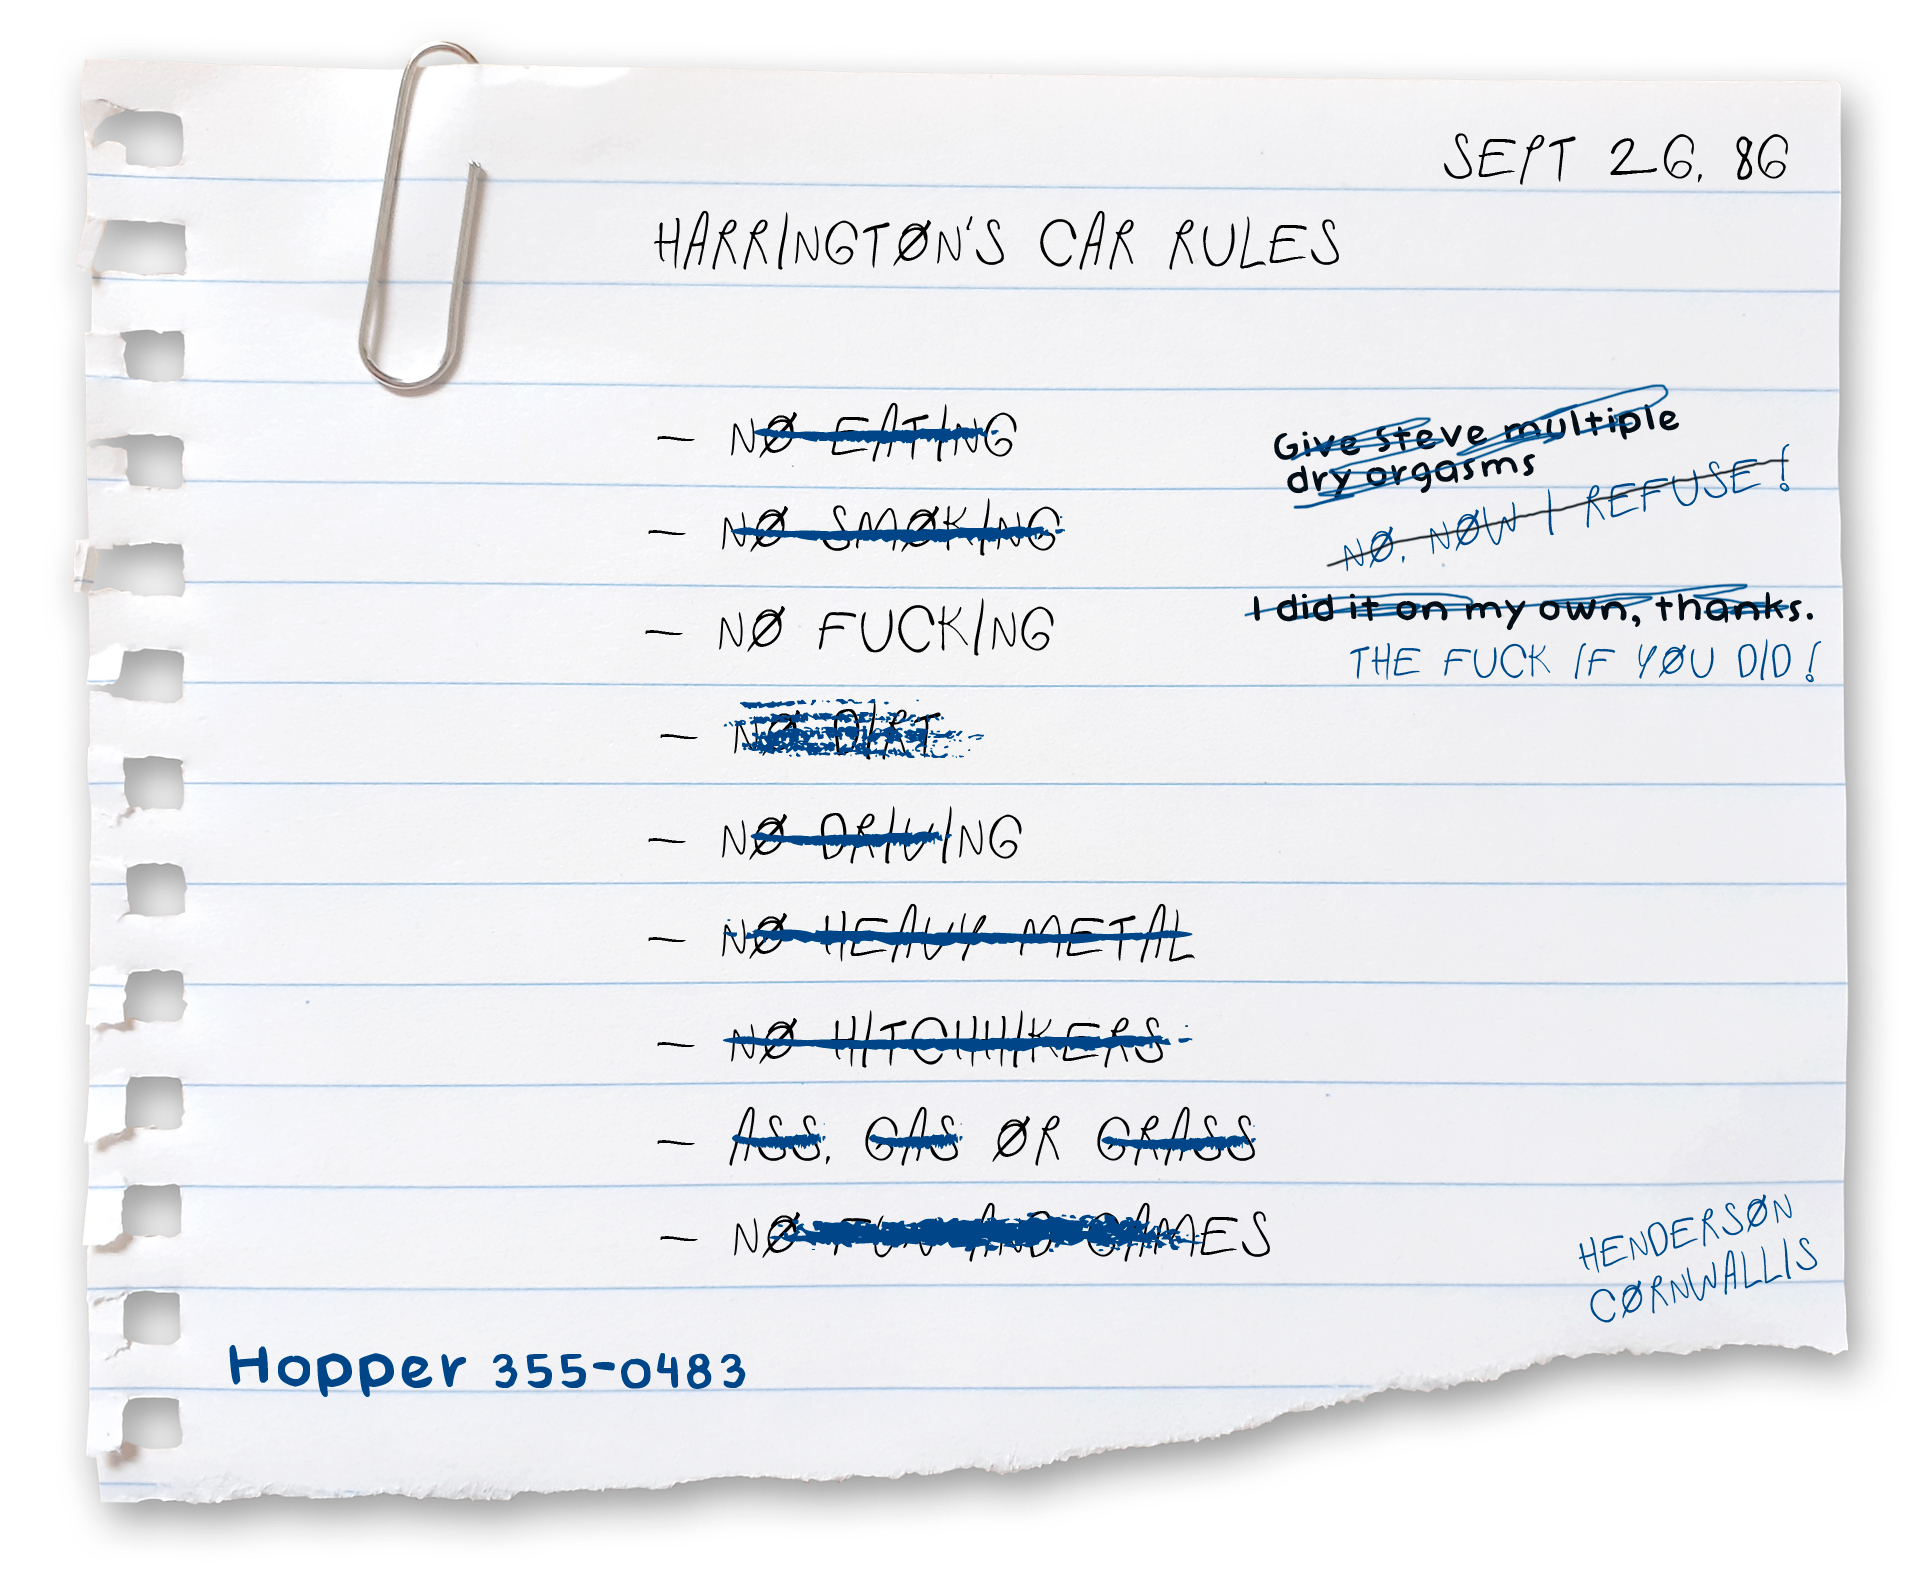 SEPT 26, 86
HARRINGTØN'S CAR RULES
— NØ EATING
Give Steve multiple
dry orgasms
NØ. NØW I REFUSE!
— NØ SMØKING
I did it on my own, thanks.
— NØ FUCKING
THE FUCK IF YØU DID!
— NØ DIRT
— NØ DRIVING
— NØ HEAVY METAL
— NØ HITCHHIKERS
— ASS, GAS ØR GRASS
— NØ FUN AND GAMES
HENDERSØN
CØRNWALLIS
Hopper 355-0483